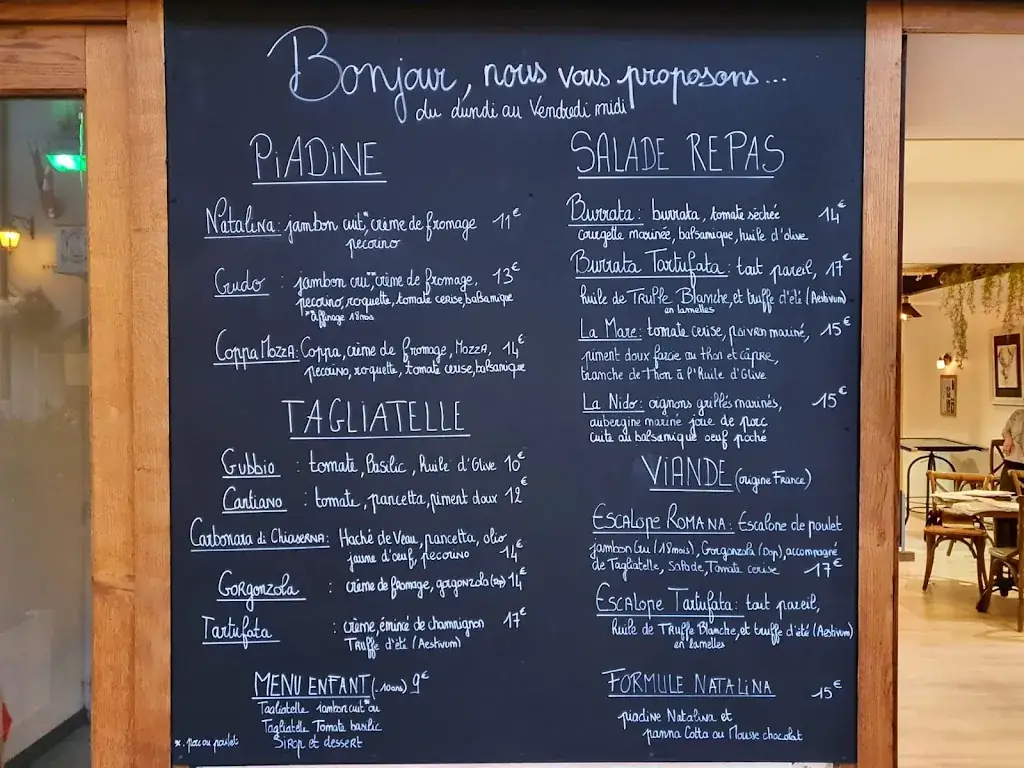 Bonjour, nous vous proposons...
du Lundi au Vendredi midi
PiADiNE
Natalina : jambon cuit*, crème de fromage 11€
pecorino
Gudo : jambon cru**, crème de fromage, 13€
pecorino, roquette, tomate cerise, balsamique
*affinage 18mois
Coppa Mozza : Coppa, crème de fromage, Mozza, 14€
pecorino, roquette, tomate cerise, balsamique
TAGLIATELLE
Gubbio : tomate, Basilic, Huile d'Olive 10€
Cantiano : tomate, pancetta, piment doux 12€
Carbonara di Chiaserna : Haché de Veau, pancetta, olio
jaune d'oeuf, pecorino 14€
Gorgonzola : crème de fromage, gorgonzola (Dop) 14€
Tartufata : crème, émincé de champignon 17€
Truffe d'été (Aestivum)
MENU ENFANT (-10ans) 9€
Tagliatelle Jambon cuit* ou
Tagliatelle Tomate basilic
Sirop et dessert
*. porc ou poulet
SALADE REPAS
Burrata : burrata, tomate sèchée 14€
courgette marinée, balsamique, huile d'olive
Burrata Tartufata : tout pareil, 17€
huile de Truffe Blanche, et truffe d'été (Aestivum)
en lamelles
La Mare : tomate cerise, poivron mariné, 15€
piment doux farcie au thon et câpre,
tranche de thon à l'Huile d'Olive
La Nido : oignons grillés marinés, 15€
aubergine mariné joue de porc
cuite au balsamique oeuf poché
VIANDE (origine France)
Escalope Romana : Escalope de poulet
jambon Cru (18mois), Gorgonzola (Dop), accompagné
de Tagliatelle, Salade, Tomate cerise 17€
Escalope Tartufata : tout pareil,
huile de Truffe Blanche, et truffe d'été (Aestivum)
en lamelles
FORMULE NATALINA 15€
piadine Natalina et
panna Cotta ou Mousse chocolat